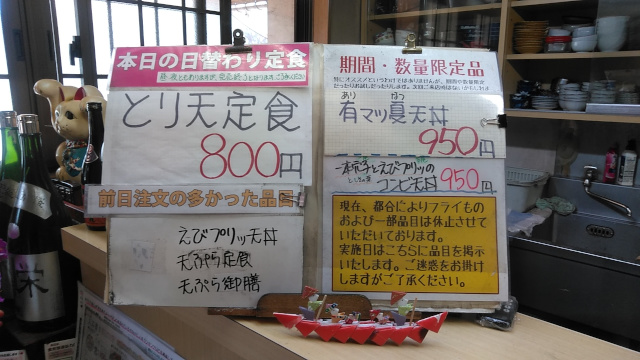 本日の日替わり定食
とり天定食
800円
前日注文の多かった品目
えびプリッツ天丼
天ぷら定食
天ぷら御膳
期間・数量限定品
あり なつ
有マッ夏天丼
950円
一本穴子とえびプリッツの
コンビ天丼 950円
現在、都合によりフライもの
および一部品目は休止させて
いただいております。
実施日はこちらに品目を掲示
いたします。ご迷惑をお掛け
しますがご了承ください。
栄